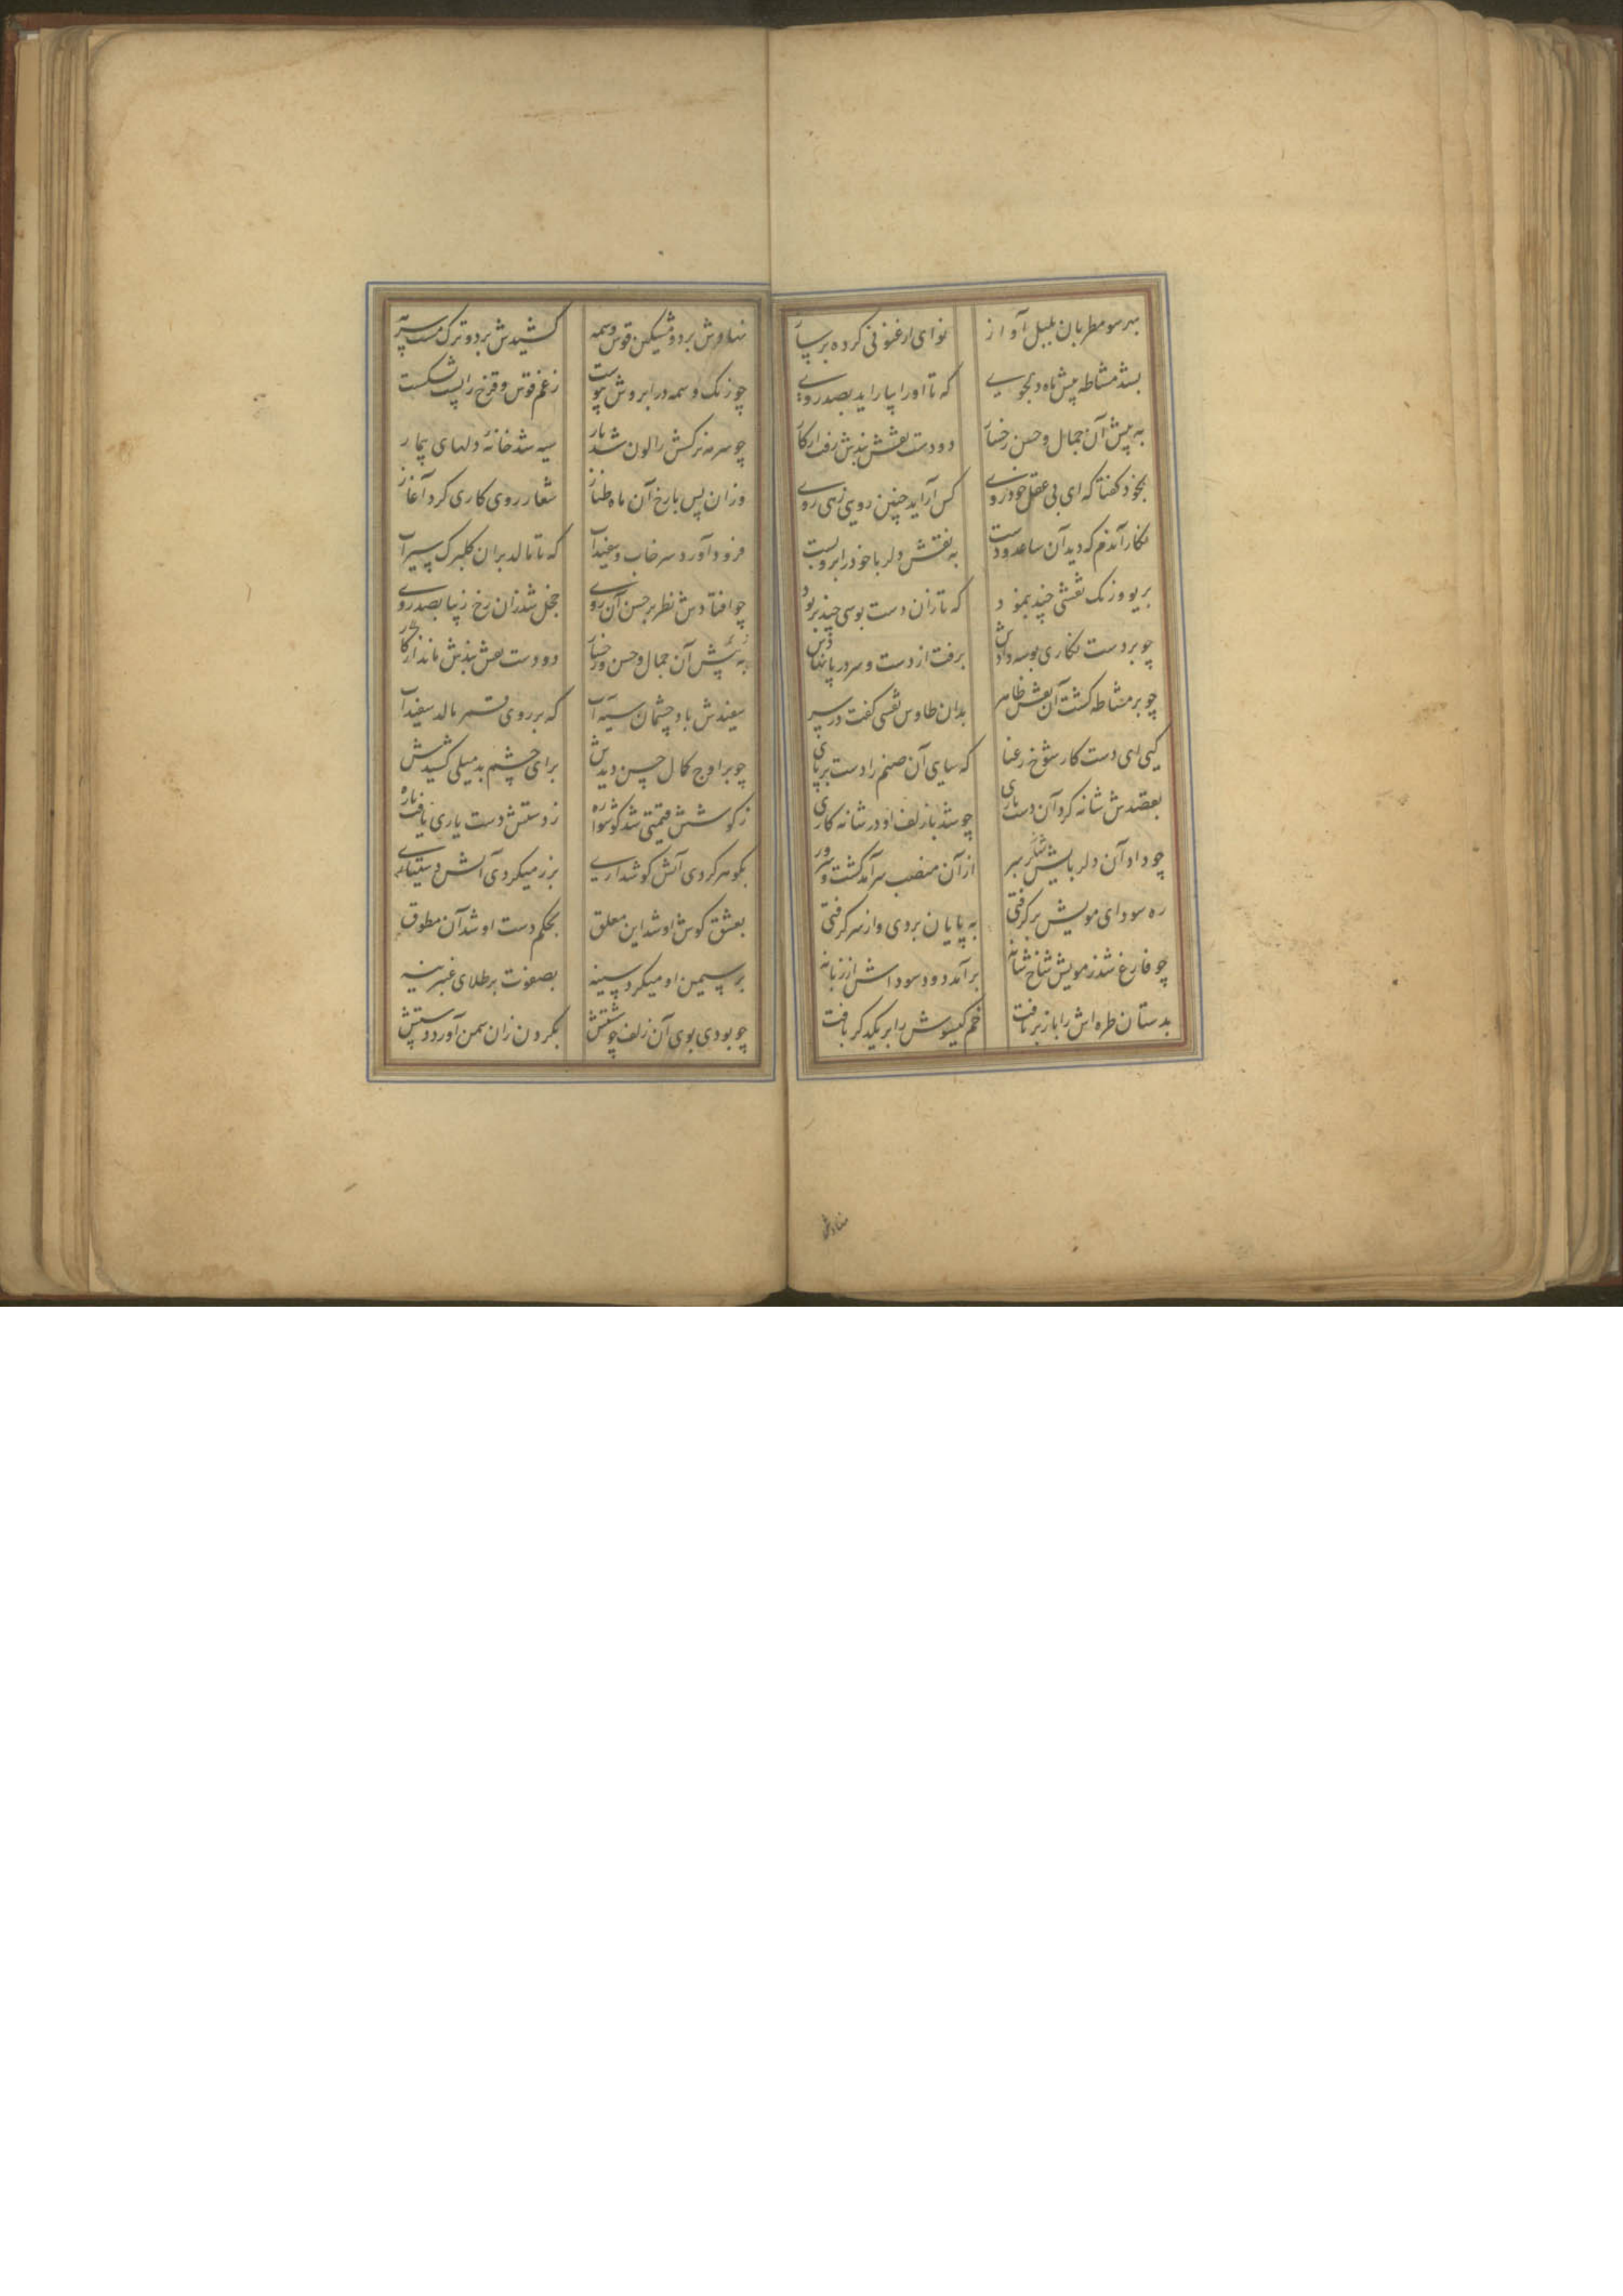 بهر سو مطربان بلبل آواز نوای ارغنونی کرده بر ساز
بشد مشاطه پیش ماه دلجوی که تا او را بیاراید بصد روی
به پیش آن جمال و حسن رخسار دو دست نقش بندش رفت از کار
بخود گفتا که ای بی عقل خودروی کس آراید چنین رویی زهی روی
نگار آندم که دید آن ساعد و دست به نقش دلربا خود را برو بست
بریو و رنگ نقشی چند بنمود که تا زان دست بوسی چند بربود
چو بر دست نگاری بوسه دادش برفت از دست و سر در پا نهادش
چو بر مشاطه گشت آن نقش ظاهر بدان طاوس نقشی گفت در سر
کیی ای دست کار شوخ رعنا که سایی آن صنم را دست بر پای
بعقدش شانه کرد آن دست یاری چو شد با زلف او در شانه کاری
چو داد آن دلربایش بر سر از آن منصب سرآمد گشت و سرور
ره سودای مویش برگرفتی به پایان بردی و از سر گرفتی
چو فارغ شد ز مویش شاخ شانه برآمد دود سوداش از زبانه
بدستان طره اش را باز بر تافت خم گیسوش را بر یکدگر بافت
نهادش
نهادش بر دو مشکین قوس وسمه کشیدش بر دو ترک مست سرمه
چو رنگ وسمه در ابروش پیوست ز غم قوس و قزح را پشت بشکست
چو سرمه نرگسش را لون شد یار سیه شد خانهٔ دلهای بیمار
وزان پس با رخ آن ماه طناز شعار روی کاری کرد آغاز
فرود آورد سرخاب و سفیداب که تا مالد بران گلبرگ سیراب
چو افتادش نظر بر حسن آن روی خجل شد زان رخ زیبا بصد روی
به پیش آن جمال و حسن رخسار دو دست نقش بندش ماند از کار
سفیدش باد چشمان سیه آب که بر روی قمر مالد سفیداب
چو بر اوج کمال حسن دیدش برای چشم بد میلی کشیدش
ز گوشش قیمتی شد گوشواره ز دستش دست یاری یافت یاره
بگوهر کردی آنش گوشداری بزر میکردی آنش دستیاری
بعشق گوش او شد این معلق بحکم دست او شد آن مطوق
بر سیمین او میکرد سینه بصفوت بر طلای عنبرینه
چو بودی بوی آن زلف چو شستش بگردن زان سمن آورد دستش